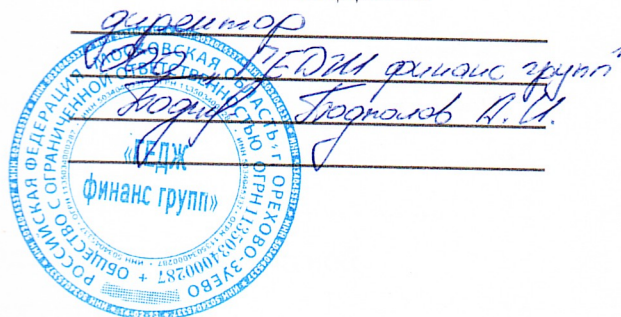 директор
ООО "ГЕДЖ финанс групп"
Подпалов А.И.
РОССИЙСКАЯ ФЕДЕРАЦИЯ * МОСКОВСКАЯ ОБЛАСТЬ, г. ОРЕХОВО-ЗУЕВО
ОБЩЕСТВО С ОГРАНИЧЕННОЙ ОТВЕТСТВЕННОСТЬЮ ОГРН 1135034000287
«ГЕДЖ
финанс групп»